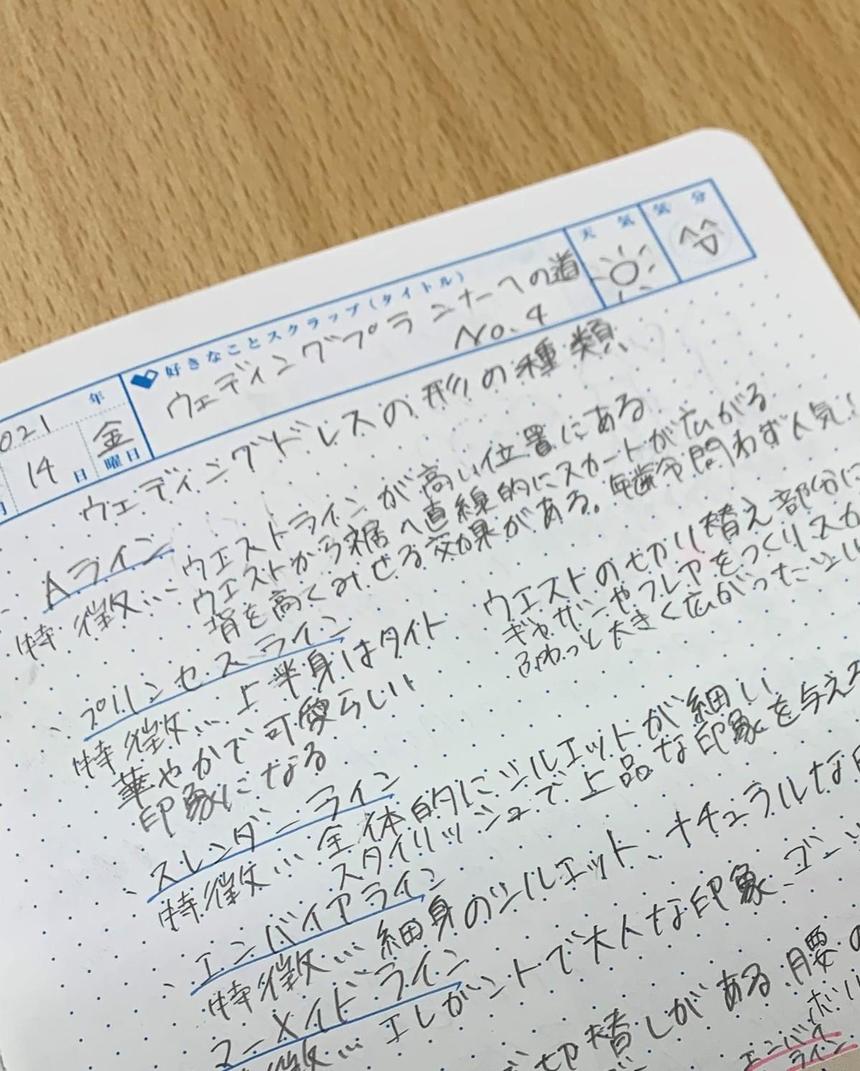 天気 気分
好きなことスクラップ(タイトル)
ウェディングプランナーへの道
No.4
021年
14日 金曜日
ウェディングドレスの形の種類
Aライン
特徴…ウエストラインが高い位置にある
ウエストから裾へ直線的にスカートが広がる
背を高くみせる効果がある。年齢問わず人気!
プリンセスライン
特徴…上半身はタイト
華やかで可愛らしい
印象になる
ウエストの切り替え部分に
ギャザーやフレアをつくりスカ
ふわっと大きく広がったシル
スレンダーライン
特徴…全体的にシルエットが細い
スタイリッシュで上品な印象を与える
エンパイアライン
特徴…細身のシルエット、ナチュラルな
マーメイドライン
特徴…エレガントで大人な印象、ゴー
切替しがある 腰の
エンパイア
ライン